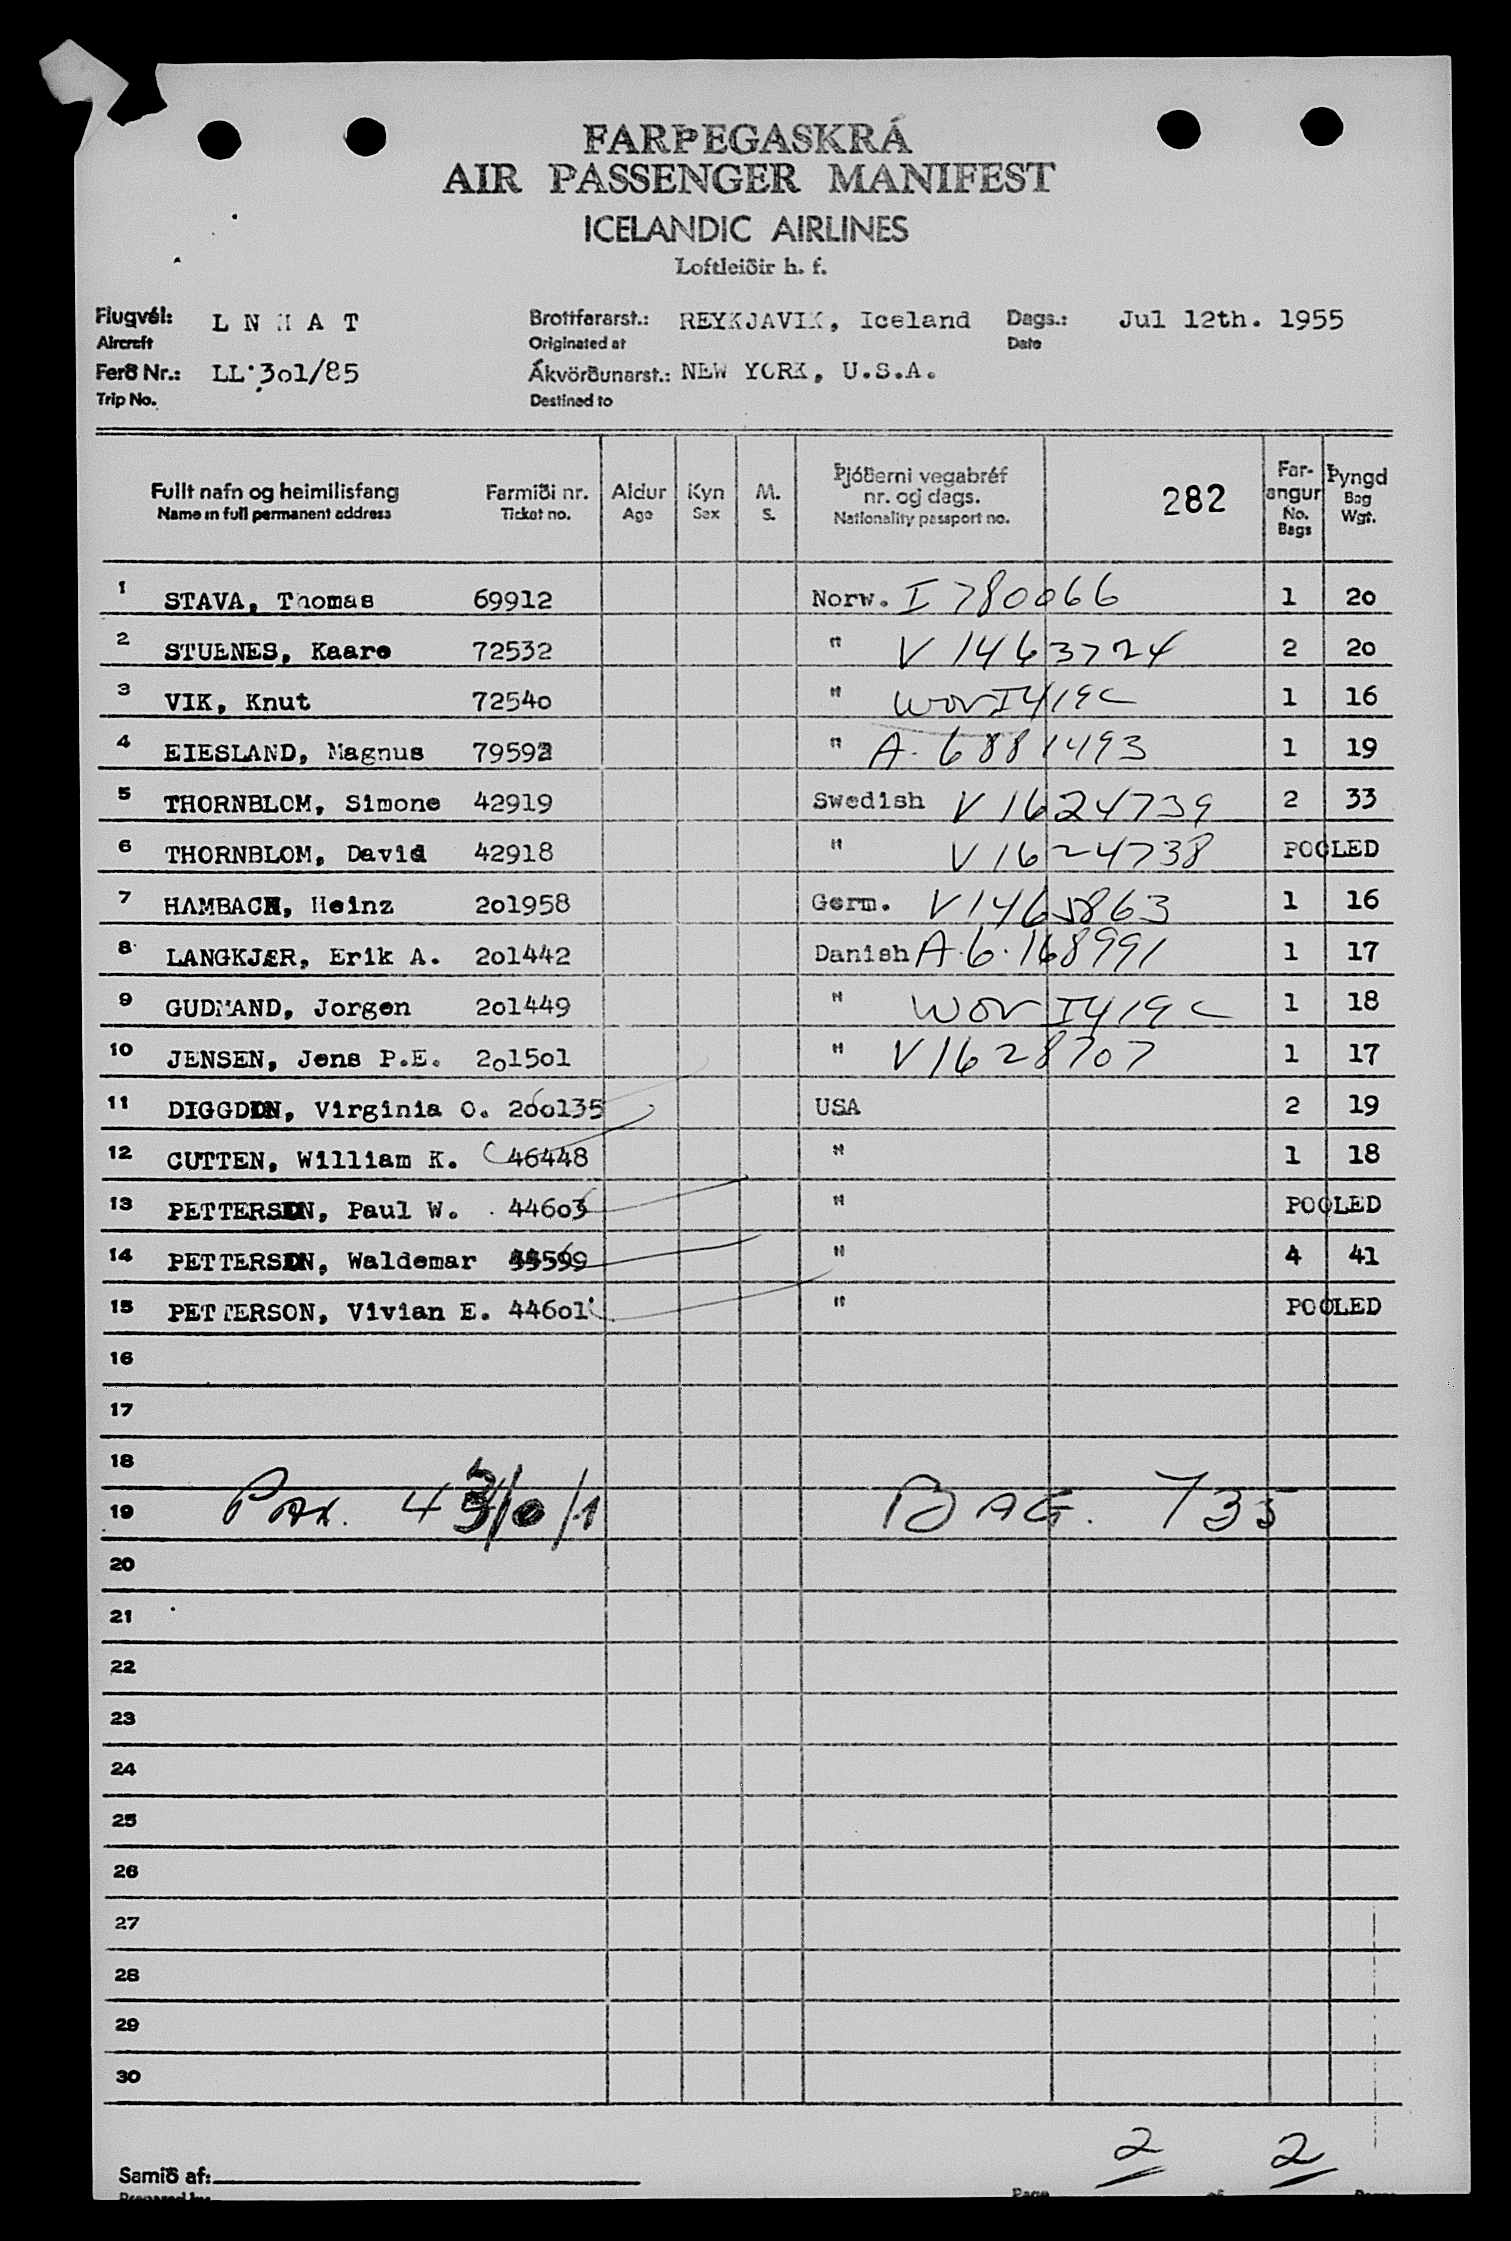 FARÞEGASKRÁ
AIR PASSENGER MANIFEST
ICELANDIC AIRLINES
Loftleiðir h. f.
Flugvél: L N H A T Brottfararst.: REYKJAVIK, Iceland Dags.: Jul 12th. 1955
Aircraft Originated at Date
Ferð Nr.: LL 3o1/85 Ákvörðunarst.: NEW YORK, U.S.A.
Trip No. Destined to
Fullt nafn og heimilisfang Farmiði nr. Aldur Kyn M. Þjóðerni vegabréf nr. og dags. 282 Far-angur Þyngd
Name in full permanent address Ticket no. Age Sex S. Nationality passport no. No. Bags Bag Wgt.
1 STAVA, Thomas 69912 Norw. I 780066 1 20
2 STUENES, Kaare 72532 " V 1463724 2 20
3 VIK, Knut 7254o " WOV I419C 1 16
4 EIESLAND, Magnus 79592 " A. 6881493 1 19
5 THORNBLOM, Simone 42919 Swedish V 1624739 2 33
6 THORNBLOM, David 42918 " V 1624738 POOLED
7 HAMBACH, Heinz 2o1958 Germ. V1465863 1 16
8 LANGKJÆR, Erik A. 2o1442 Danish A.6.168991 1 17
9 GUDMAND, Jorgen 2o1449 " WOV I419C 1 18
10 JENSEN, Jens P.E. 2o15o1 " V1628707 1 17
11 Virginia O. 2oo135 USA 2 19
12 CUTTEN, William K. 46448 " 1 18
13 PETTERSON, Paul W. 446o3 " POOLED
14 PETTERSON, Waldemar " 4 41
15 PETTERSON, Vivian E. 446o1 " POOLED
16
17
18
19 PAX. BAG. 735
20
21
22
23
24
25
26
27
28
29
30
2 2
Samið af:
Prepared by
Page of Pages